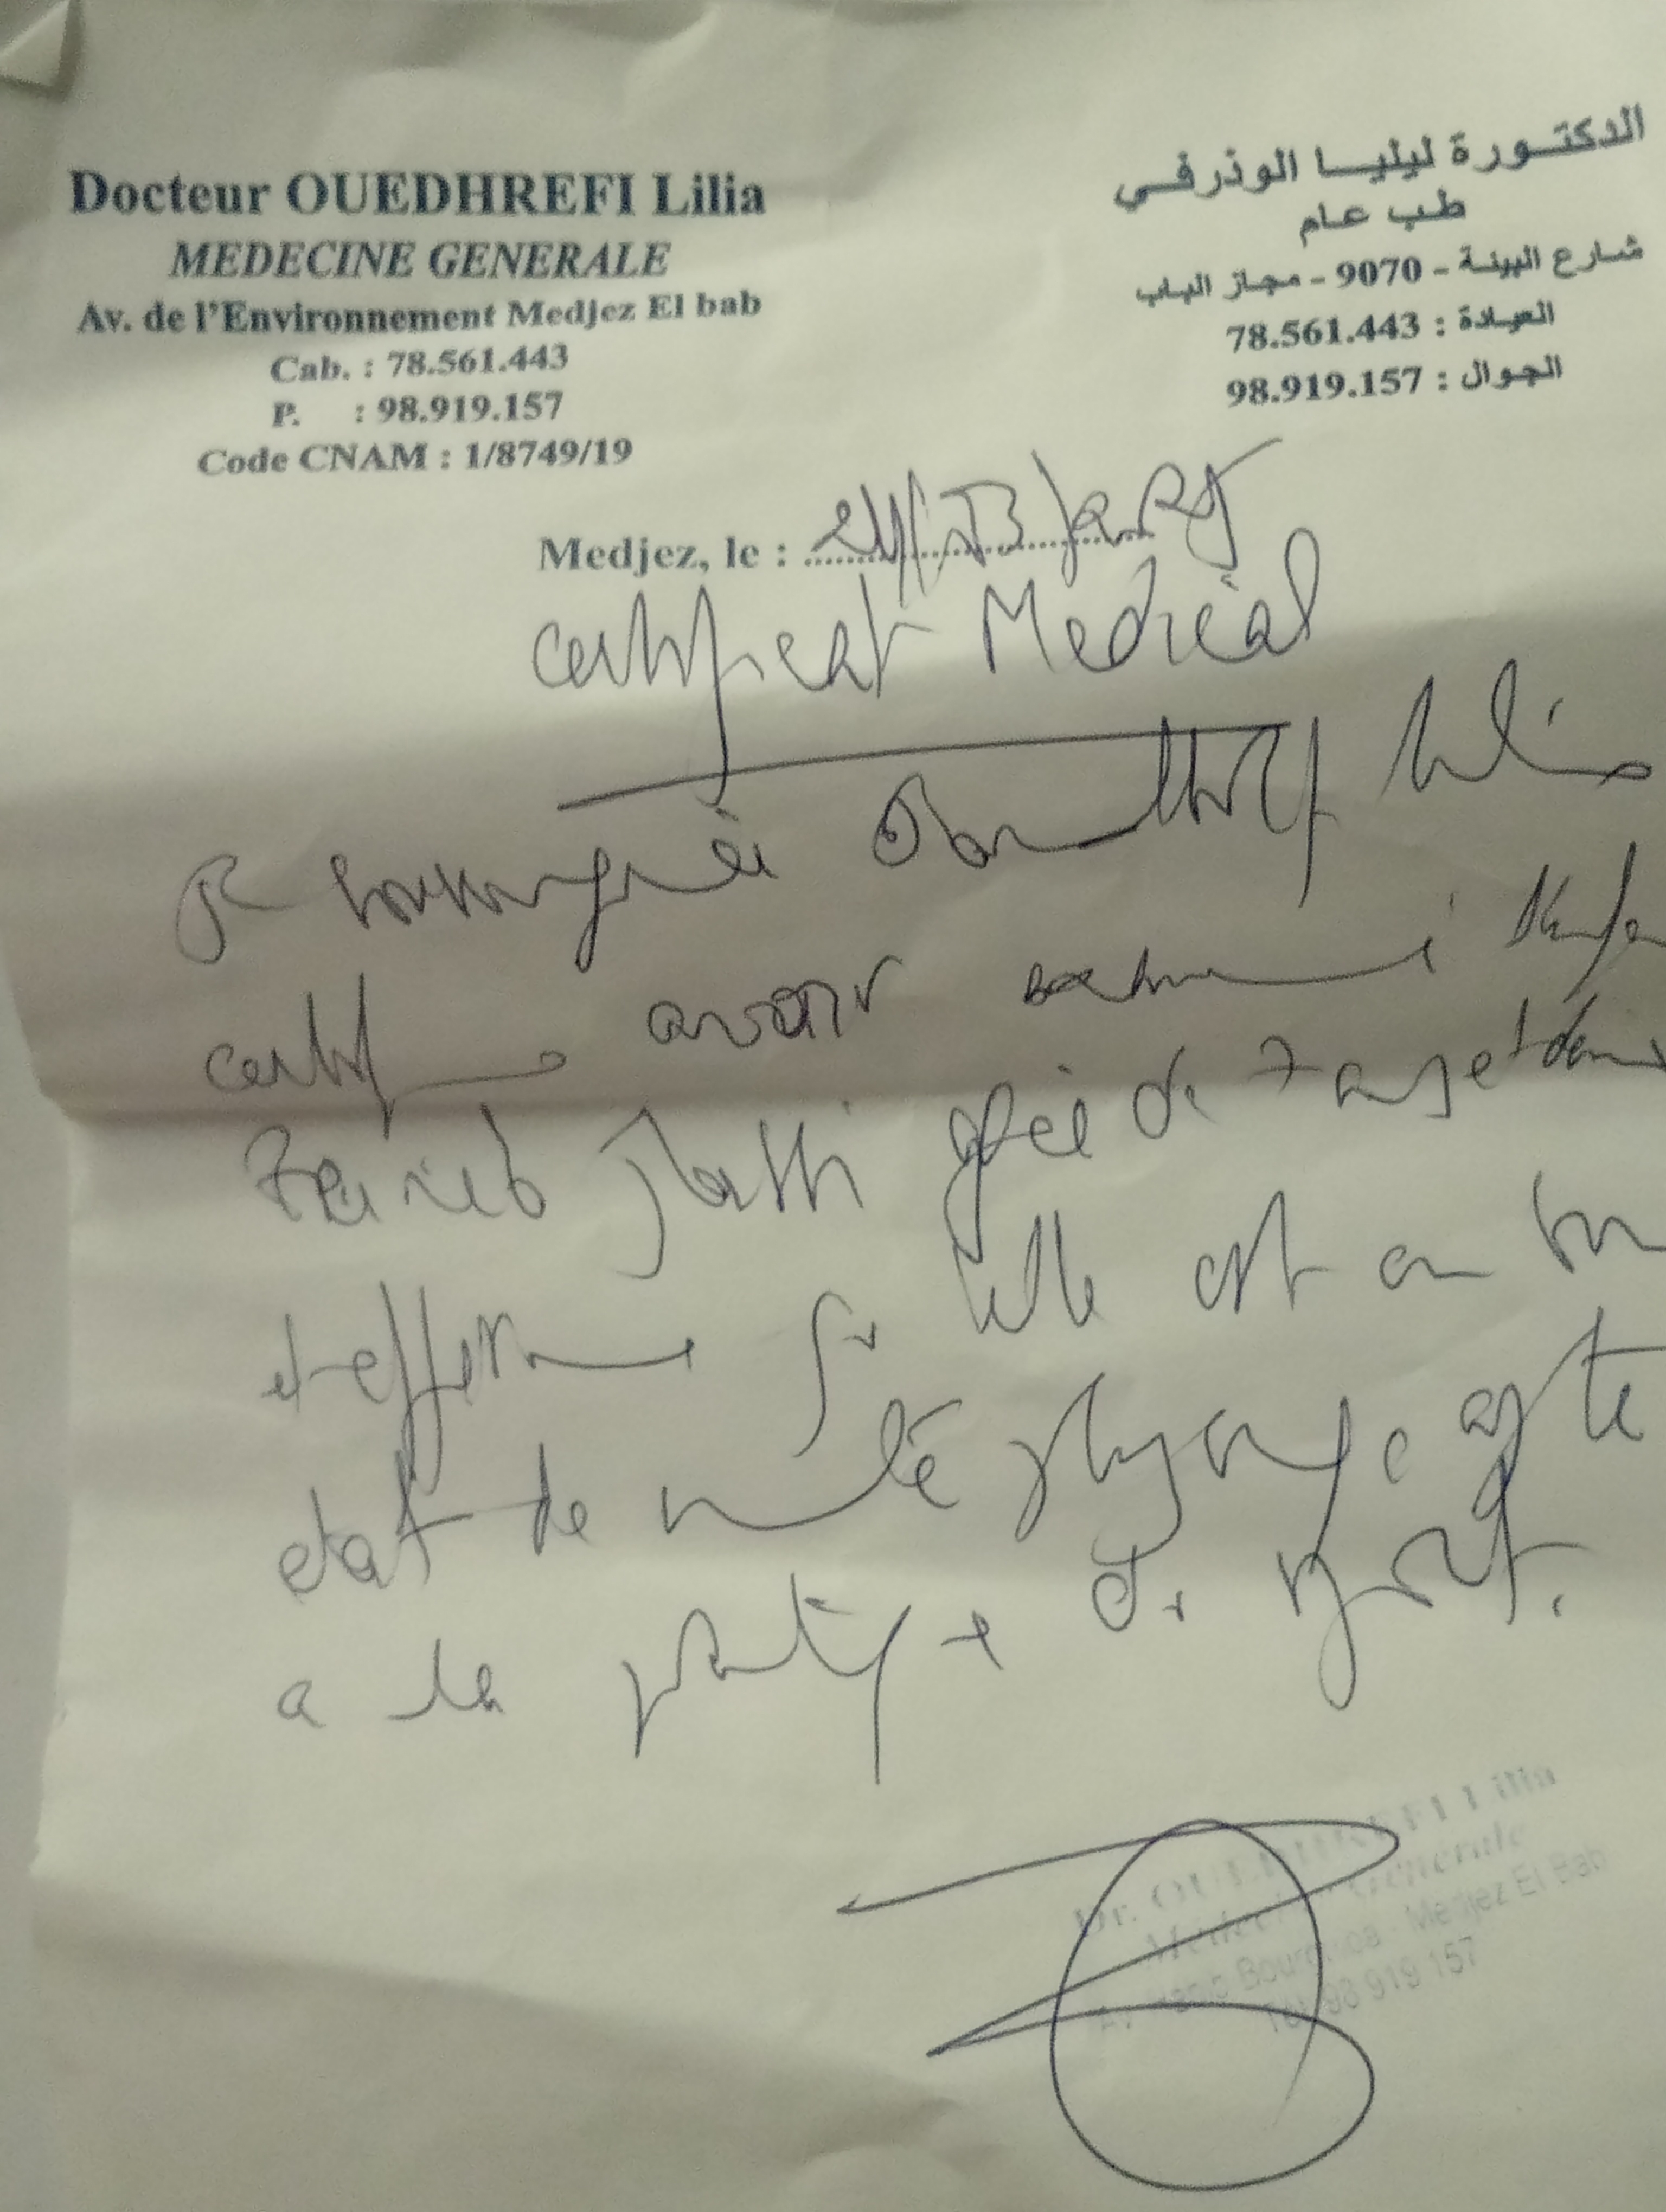 Docteur OUEDHREFI Lilia
MEDECINE GENERALE
Av. de l'Environnement Medjez El bab
Cab. : 78.561.443
P. : 98.919.157
Code CNAM : 1/8749/19
الدكتورة ليليا الوذرفي
طب عام
شارع البيئة - 9070 - مجاز الباب
العيادة : 78.561.443
الجوال : 98.919.157
Medjez, le :
Certificat Medical
Je soussignée Lilia
certifie avoir examiné
Zeineb âgée de 7 ans et demi
et affirme que elle est en bon
etat de santé physique apte
a la pratique du sport.
Dr. OUEDHREFI Lilia
Médecine Générale
Av. Habib Bourguiba - Medjez El Bab
Tél 98 919 157